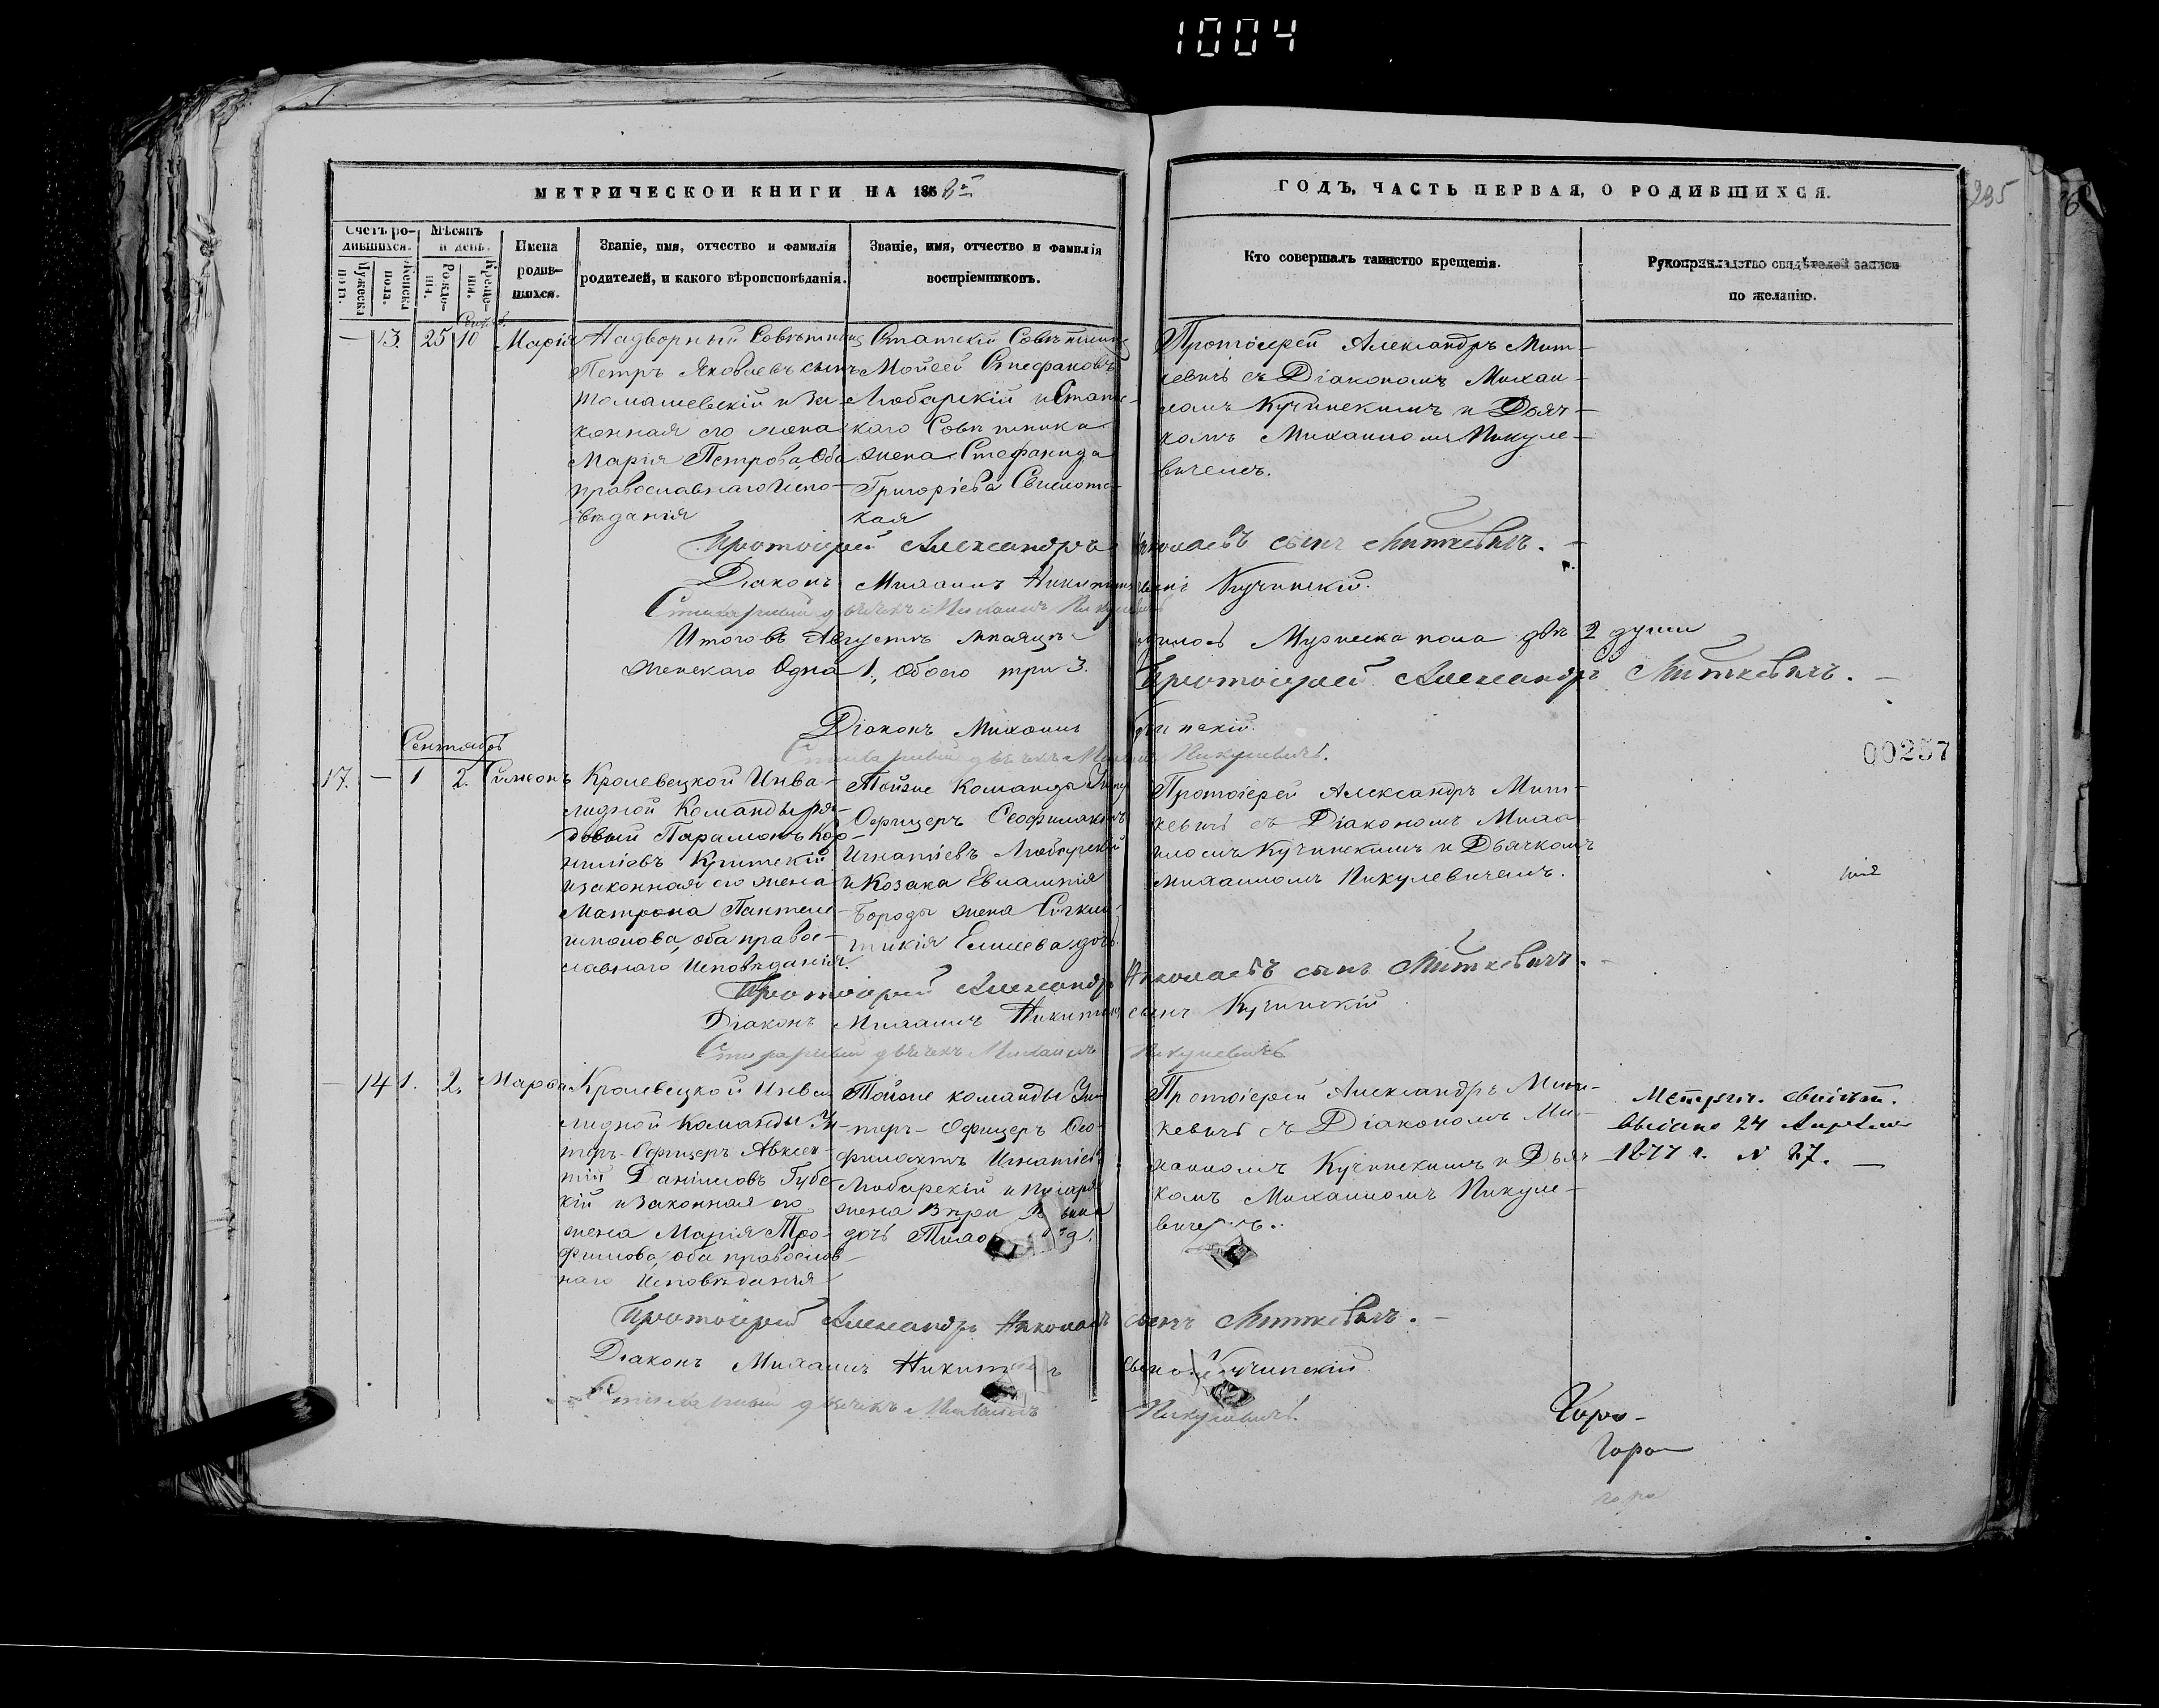 1004
МЕТРИЧЕСКОЙ КНИГИ НА 1862й
ГОДЪ, ЧАСТЬ ПЕРВАЯ, О РОДИВШИХСЯ.
235
Счетъ ро-
дившихся.
Мужеска
пола.
Женска
пола.
Мѣсяцъ
и день.
Рожде-
нія.
Креще-
нія.
Имена
родив-
шихся.
Званіе, имя, отчество и фамилія
родителей, и какого вѣроисповѣданія.
Званіе, имя, отчество и фамилія
воспріемниковъ.
Кто совершалъ таинство крещенія.
Рукоприкладство свидѣтелей записи
по желанію.
— 13. 25 10 Марія
Надворный Совѣтникъ
Петръ Яковлевъ сынъ
Томашевскій и за-
конная его жена
Марія Петрова, Оба
православнаго испо-
вѣданія
Статскій Совѣтникъ
Мойсей Стефановъ
Любарскій и Статс-
каго Совѣтника
жена Стефанида
Григоріева
кая
Протоіерей Александръ Мит-
кевичъ съ Діакономъ Михаи-
ломъ Кучинскимъ и Дьяч-
комъ Михаиломъ Пикуле-
вичемъ.
Протоіерей Александръ Николаевъ сынъ Миткевичъ.
Діаконъ Михаилъ Кучинскій.
Стихарный дьячекъ Михаилъ Пикулевичъ
Итого въ Августѣ мѣсяцѣ Мужеска пола двѣ 2 души
Женскаго Одна 1, Обоего три 3.
Протоіерей Александръ Миткевичъ.
Діаконъ Михаилъ
Стихарный дьячекъ Пикулевичъ.
00257
Сентябрь
17. — 1 2. Симеонъ
Кролевецкой Инва-
лидной Команды ря-
довый Парамонъ Кор-
ниліевъ
и законная его жена
Матрона Пантеле-
имонова, оба правос-
лавнаго Исповѣданія.
Тойже Команды Унтеръ
Офицеръ Феофилактъ
Игнатіевъ Любарскій
и Козака Евлампія
Бороды жена
Елисеева дочь
Протоіерей Александръ Мит-
кевичъ съ Діакономъ Миха-
иломъ Кучинскимъ и Дьячкомъ
Михаиломъ Пикулевичемъ.
Протоіерей Александръ Николаевъ сынъ Миткевичъ.
Діаконъ Михаилъ Никитинъ сынъ Кучинскій
Стихарный дьячекъ Михаилъ Пикулевичъ
— 14 1. 2.
Кролевецкой Инва-
лидной Команды Ун-
теръ-Офицеръ Авксен-
тій Даніиловъ Губс-
кій и законная его
жена Марія Тро-
фимова, оба православ-
наго Исповѣданія
Тойже команды Ун-
теръ-Офицеръ Фео-
филактъ Игнатіевъ
Любарскій и писаря
жена
дочь
Протоіерей Александръ Мит-
кевичъ съ Діакономъ Ми-
хаиломъ Кучинскимъ и Дьяч-
комъ Михаиломъ Пикуле-
вичемъ.
Метрич. свидѣт.
выдано 24 Апрѣля
1877 г. N 27. —
Протоіерей Александръ Николаевъ сынъ Миткевичъ.
Діаконъ Михаилъ сынъ Кучинскій
Стихарный дьячекъ Михаилъ Пикулевичъ.